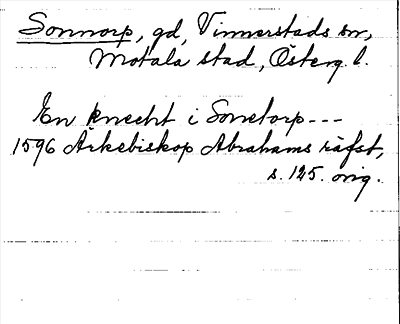 Sonnorp, gd, Vinnerstads sn,
Motala stad, Österg. l.
En knecht i Sonetorp---
1596 Ärkebiskop Abrahams räfst,
s. 125. orig.